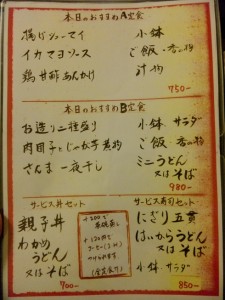 本日のおすすめA定食
揚げシューマイ
イカマヨソース
鶏甘酢あんかけ
小鉢
ご飯・香の物
汁物
750-
本日のおすすめB定食
お造り二種盛り
肉団子とじゃが芋煮物
さんま一夜干し
小鉢 サラダ
ご飯・香の物
ミニうどん
又はそば
980-
サービス丼セット
親子丼
わかめ
うどん
又はそば
700-
+200で
+120円で
コーヒー
つけられます
サービス寿司セット
にぎり五貫
はいからうどん
又はそば
小鉢 サラダ
850-